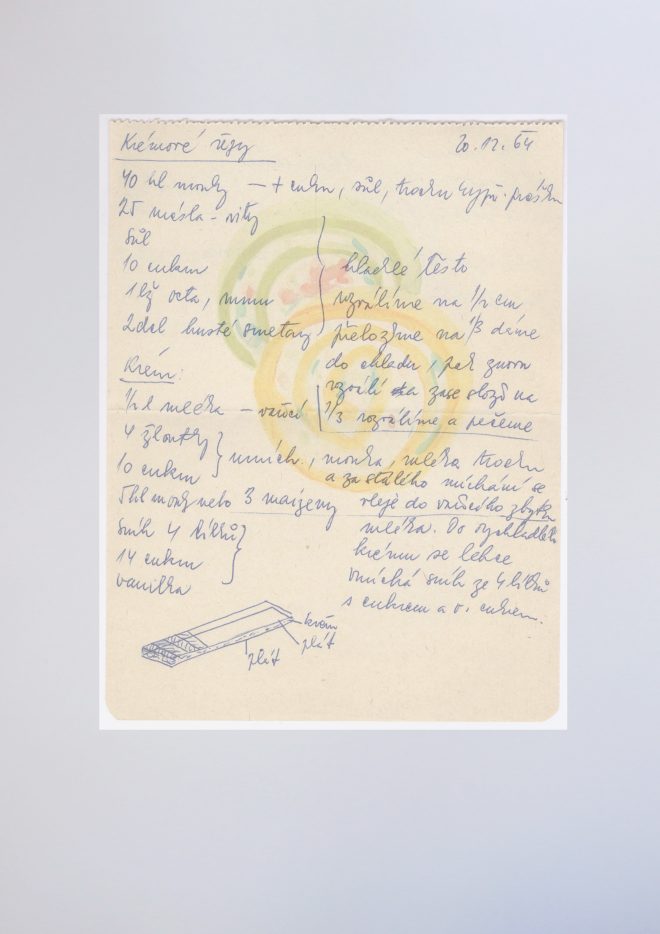 Krémové řezy 20.12.64
40 hl mouky — + cukru, sůl, trochu kypř. prášku
25 másla - vity
sůl
10 cukru
1 lž octa, rumu
2 del husté smetany
hladké těsto
rozválíme na 1/2 cm
přeložíme na 1/3 dáme
do chladu, pak znovu
rozválí a zase složí na
1/3 rozválíme a pečeme
Krém:
1/2 l mléka — vařící
4 žloutky
10 cukru
umích., mouka, mléka trochu
a za stálého míchání se
5 hl mouky nebo 3 maizeny
vleje do vařícího zbytku
mléka. Do vychladlého
krému se lehce
vmíchá sníh ze 4 bílků
s cukrem a v. cukrem.
sníh 4 bílků
14 cukru
vanilka
krém
plát
plát